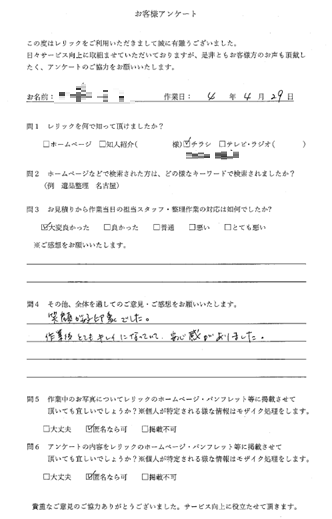 お客様アンケート
この度はレリックをご利用いただきまして誠に有難うございました。
日々サービス向上に取組ませていただいておりますが、是非ともお客様方のお声も頂戴し
たく、アンケートのご協力をお願いいたします。
お名前: 作業日: 4 年 4 月 29 日
問1 レリックを何で知って頂けましたか?
□ホームページ □知人紹介( 様) ☑チラシ □テレビ・ラジオ( )
問2 ホームページなどで検索された方は、どの様なキーワードで検索されましたか?
(例 遺品整理 名古屋)
問3 お見積りから作業当日の担当スタッフ・整理作業の対応は如何でしたか?
☑大変良かった □良かった □普通 □悪い □とても悪い
※ご感想をお願いいたします。
問4 その他、全体を通してのご意見・ご感想をお願いいたします。
笑顔が好印象でした。
作業後とてもキレイになっていて、安心感がありました。
問5 作業中のお写真についてレリックのホームページ・パンフレット等に掲載させて
頂いても宜しいでしょうか?※個人が特定される様な情報はモザイク処理をします。
□大丈夫 ☑匿名なら可 □掲載不可
問6 アンケートの内容をレリックのホームページ・パンフレット等に掲載させて
頂いても宜しいでしょうか?※個人が特定される様な情報はモザイク処理をします。
□大丈夫 ☑匿名なら可 □掲載不可
貴重なご意見のご協力ありがとうございました。サービス向上に役立たせて頂きます。